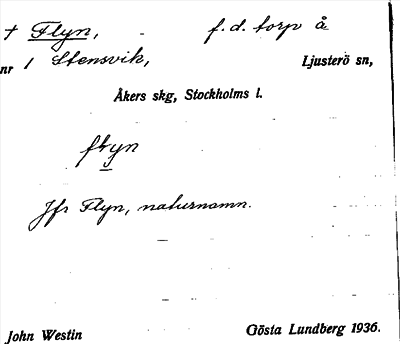 + Flyn, - f. d. torp å
nr 1 Stensvik, Ljusterö sn,
Åkers skg, Stockholms l.
flyn
Jfr Flyn, naturnamn.
John Westin Gösta Lundberg 1936.